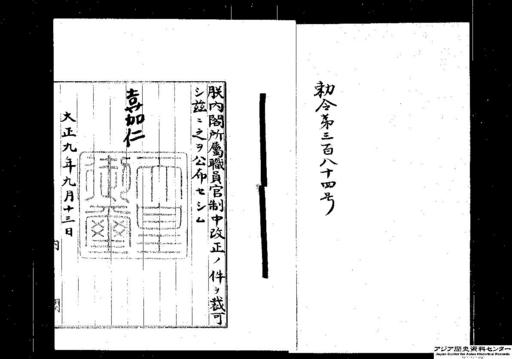 勅令第三百八十四号
朕内閣所属職員官制中改正ノ件ヲ裁可
シ茲ニ之ヲ公布セシム
嘉仁
天皇
御璽
大正九年九月十三日
内閣
アジア歴史資料センター
Japan Center for Asian Historical Records